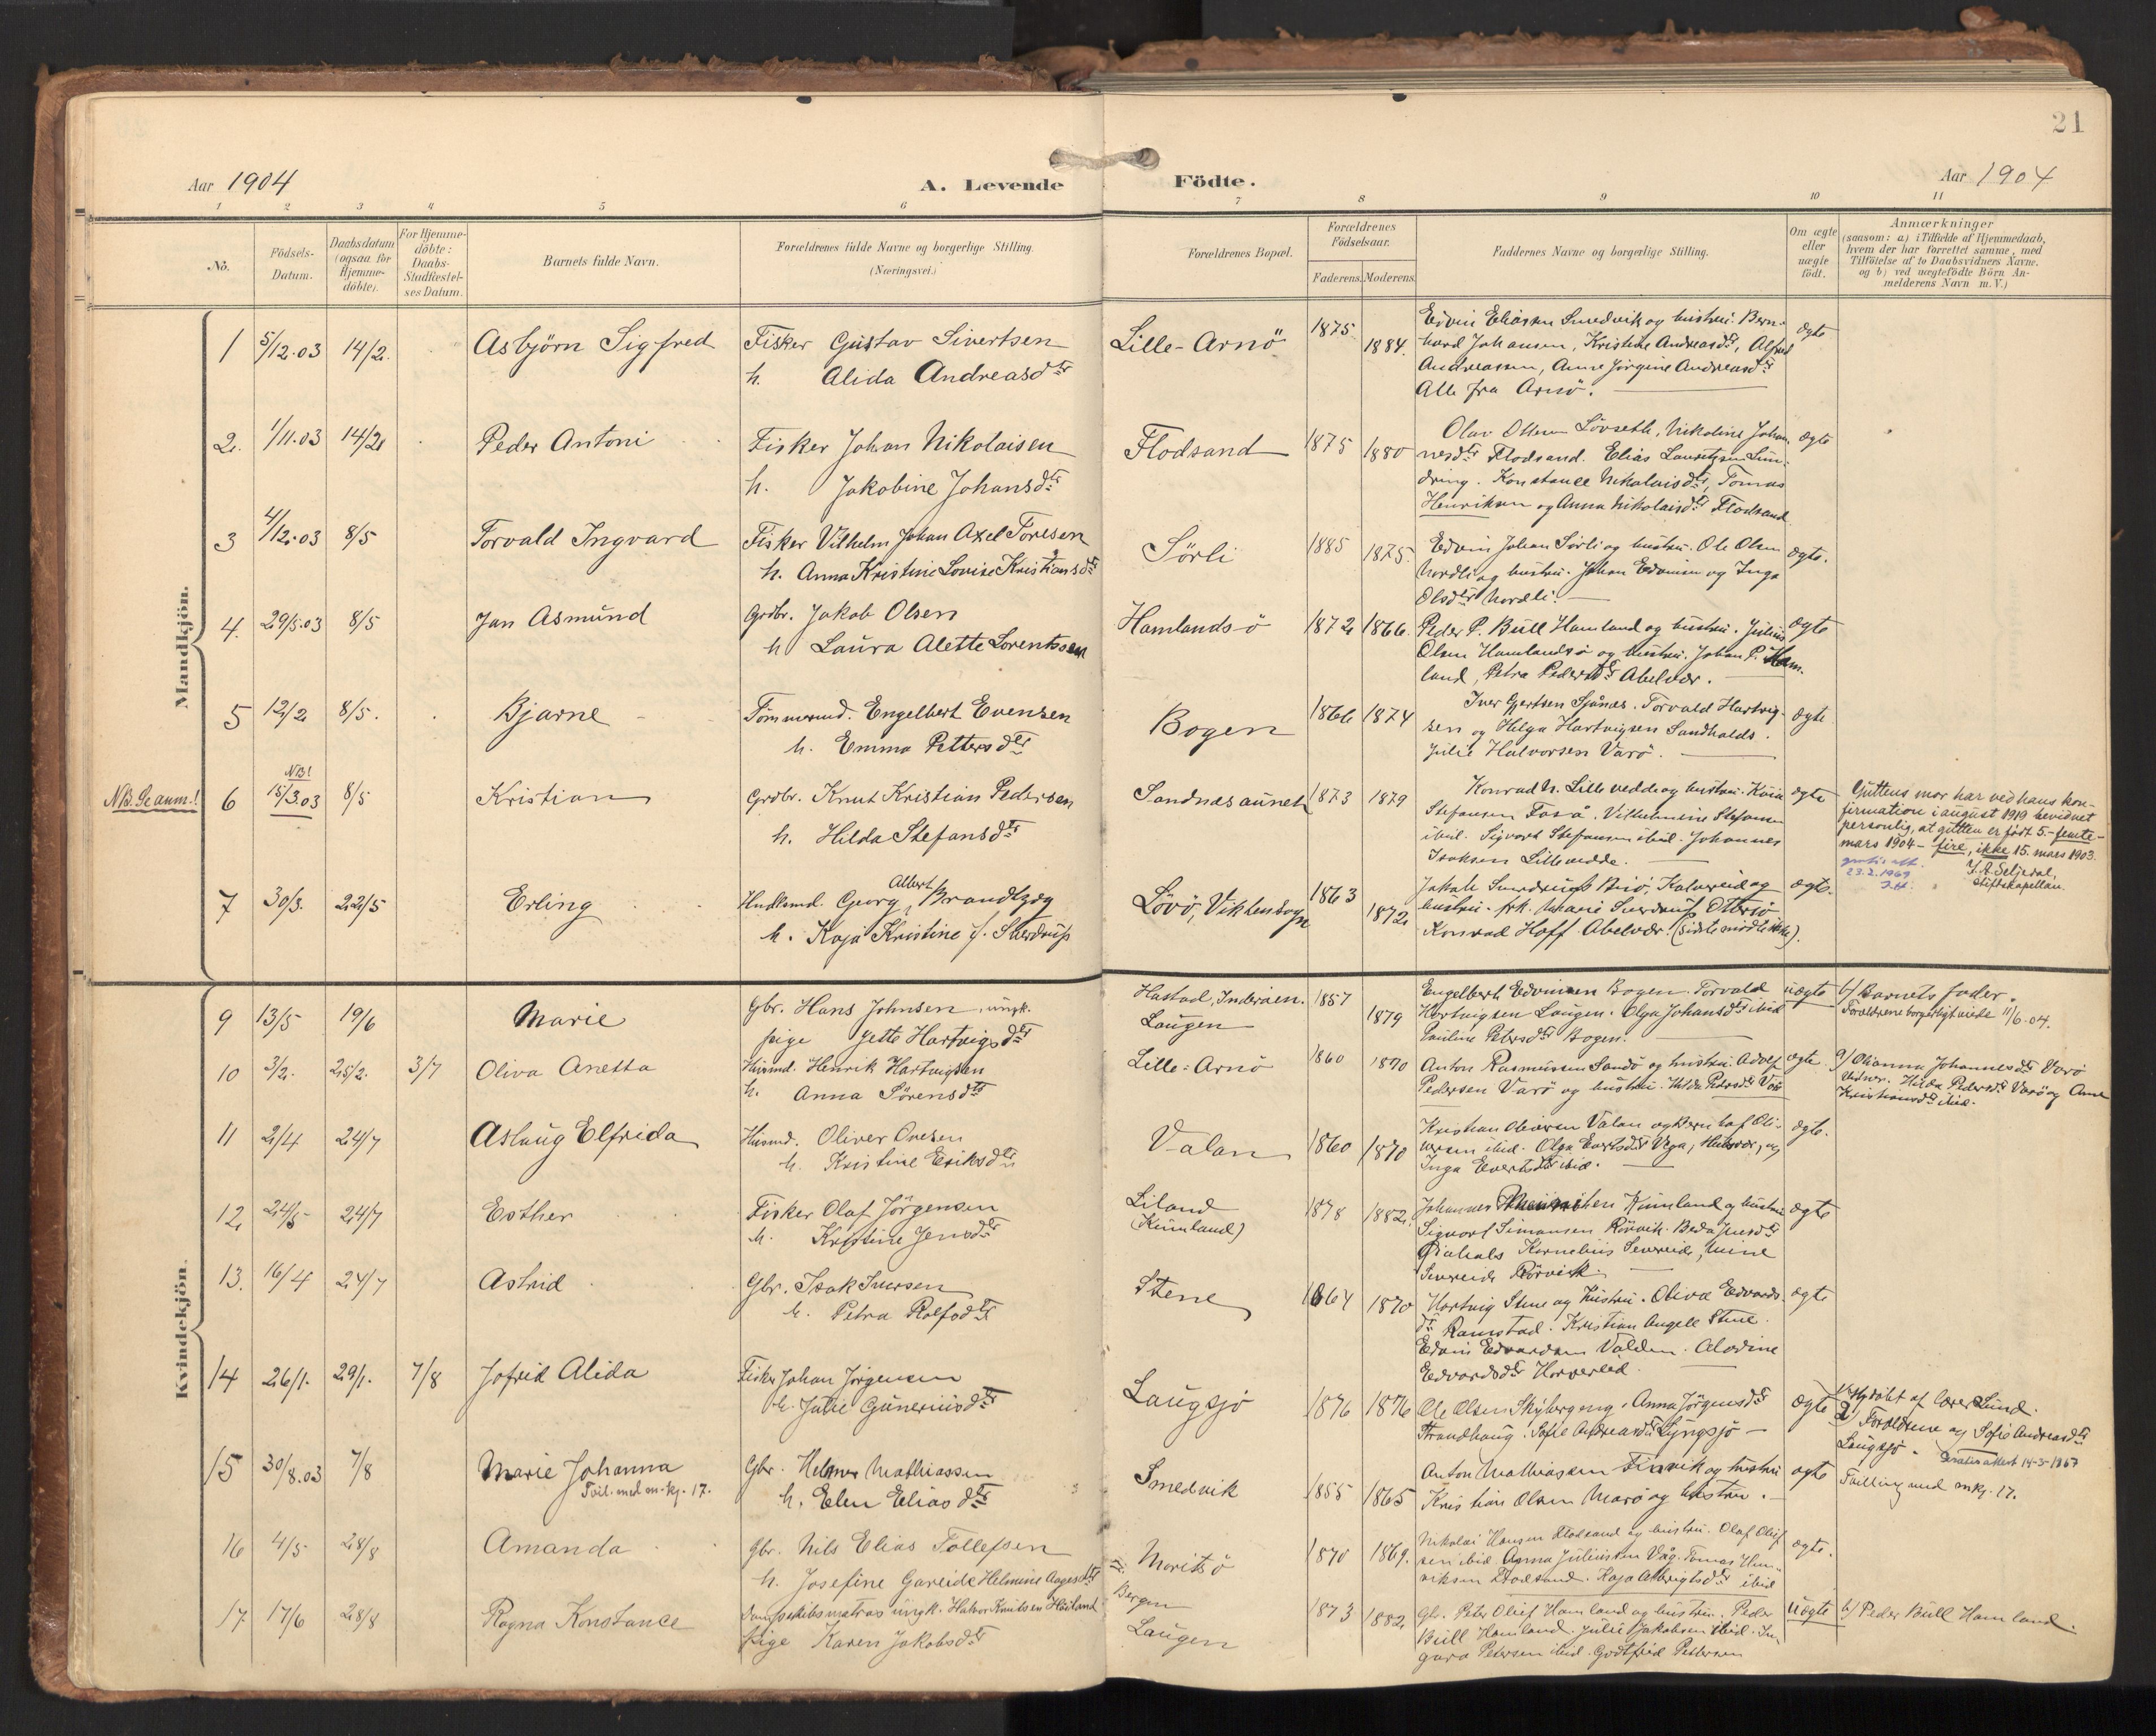 21
Aar 1904
A. Levende Födte.
Aar 1904
1 2 3 4 5 6 7 8 9 10 11
No.
Födsels-
Datum.
Daabsdatum
(ogsaa for
Hjemme-
döbte).
For Hjemme-
döbte:
Daabs-
Stadfæstel-
ses Datum.
Barnets fulde Navn.
Forældrenes fulde Navne og borgerlige Stilling.
(Næringsvei.)
Forældrenes Bopæl.
Forældrenes
Födselsaar.
Faderens. Moderens.
Faddernes Navne og borgerlige Stilling.
Om ægte
eller
uægte
födt.
Anmærkninger
(saasom: a) i Tilfælde af Hjemmedaab,
hvem der har forrettet samme, med
Tilföielse af to Daabsvidners Navne.
og b) ved uægtefödte Börn An-
melderens Navn m. V.)
Mandkjön.
1 5/12.03 14/2. Asbjörn Sigfred
Fisker Gustav Sivertsen
h. Alida Andreasdtr
Lille-Arnö 1875 1884.
Edvin Eliasen Smedvik og hustru. Bern-
hard Johansen, Kristine Andreasdtr, Alfred
Andreassen, Anne Jörgine Andreasdtr
Alle fra Arnö.
ægte
2. 1/11.03 14/2 Peder Antoni
Fisker Johan Nikolaisen
h. Jakobine Johansdtr
Flodsand 1875 1880
Olav Olsen Lövseth, Nikoline Johan-
nesdtr Flodsand. Elias Lauritzsen
Konstance Nikolaisdtr, Tomas
Henriksen og Anna Nikolaisdtr Flodsand
ægte
3 4/12.03 8/5 Torvald Ingvard
Fisker Vilhelm Johan Axel Toresen
h. Anna Kristine Lovise Kristiansdtr
Sörli 1885 1875.
Edvin Johan Sörli og hustru. Ole Olsen
Nordli og hustru. Johan Edvinsen og Inga
Olsdtr Nordli.
ægte.
4. 29/5.03 8/5 Jan Asmund
Grdbr. Jakob Olsen
h Laura Alette Lorentssen
Hamlands-ö 1872 1866.
Peder P. Bull Hamland og hustru. Julius
Olsen Hamlandsö og hustru. Johan P. Ham-
land, Petra Pedersdtr Abelvær.
ægte
5 12/2 8/5. Bjarne
Tömmermd. Engelbert Evensen
h. Emma Pettersdtr
Bogen 1866 1874
Iver Gjertsen Sjönes. Torvald Hartvig-
sen og Helga Hartvigsen Sandhalds.
Julie Halvorsen Varö.
ægte
NB. Se anm.! 6 NB! 15/3.03 8/5 Kristian
Grdbr. Knut Kristian Pedersen
h. Hilda Stefansdtr
Sandnesaunet 1873 1879
Konrad N. Lillevedde og hustru. Kaia
Stefansen Foså. Vilhelmine Stefansen
ibid. Sigvart Stefansen ibid. Johannes
Isaksen Lillevedde.
ægte
Guttens mor har ved hans kon-
firmation i august 1919 bevidnet
personlig, at gutten er født 5.-femte-
mars 1904 - fire, ikke 15. mars 1903.
J. A. Seljedal,
stiftskapellan.
23.2.1969
7 30/3. 22/5 Erling
Hndlsmd. Georg Albert Brandtzæg
h. Kaja Kristine f. Sverdrup
Lövö, Viktenbogn 1863 1872
Jakob Sverdrup Briö, Kalvereid og
hustru. frk. Marie Sverdrup Ottersö
Konrad Hoff Abelvær. (sidste mödte ikke).
ægte.
Kvindekjön.
9 13/5 19/6 Marie
Gbr. Hans Johnsen, ungk.
pige Jette Hartvigsdtr
Hastad, Inderöen.
Laugen 1857 1879
Engelbert Edvinsen Bogen. Torvald
Hartvigsen Laugen. Olga Johansdtr ibid
Pauline Petersdtr Bogen.
uægte
b/ Barnets fader.
Forældrene borgerligt viede 11/6.04.
10 3/2. 25/2. 3/7 Oliva Anetta
Husmd. Henrik Hartvigsen
h. Anna Sörensdtr
Lille-Arnö 1860 1870
Anton Rasmussen Sandö og hustru. Adolf
Pedersen Varö og hustru. Hilda Pedersdtr Varö
ægte.
a/ Olianna Johannesdtr Varö
Vidner. Hilda Pedersdtr Varö og Anne
Kristiansdtr ibid.
11 2/4 24/7 Aslaug Elfrida
Husmd. Oliver Ovesen
h. Kristine Eriksdtr
Valan 1860 1870
Kristian Oliversen Valan og Berntaf Oli-
versen ibid. Olga Evertsdtr Vega, og
Inga Evertsdtr ibid.
ægte.
12 24/5 24/7 Esther
Fisker Olaf Jörgensen
h. Kristine Jensdtr
Liland
(Kumland) 1878 1882.
Johannes Kumland og hustru
Sigvart Simonsen Rörvik. Beda Jensdtr
Kornelius Sevreide, Mine
Sevreide Rörvik.
ægte
13. 16/4 24/7 Astrid
Gbr. Isak Iversen
h. Petra Rolfsdtr
Stene 1864 1870
Hartvig Stene og Hustru. Oliva Edvards-
dtr Ramstad. Kristian Angell Stene.
Edvin Edvardsen Valden. Alovine
Edvardsdtr Horvereid.
ægte
14 26/1. 29/1. 7/8 Jofrid Alida
Fisker Johan Jörgensen
h. Julie Guneriusdtr
Laugsjö 1876 1876
Ole Olsen Skybergmg. Anna Jörgensdtr
Strandhaug. Sofie Andreasdtr Lyngsjö
ægte
Hjdöbt af lærer Lund.
2) Forældrene og Sofie Andreasdtr
Laugsjö.
Gratis attest 14-3-1967
15 30/8.03 7/8 Marie Johanna
Tvil. med m. kj. 17.
Gbr. Helmer Mathiassen
h. Elen Eliasdtr
Smedvik 1855 1865
Anton Mathiassen Finvik og hustru
Kristian Olsen Marö og hustru.
ægte
Tvilling med mkj. 17.
16 4/5 28/8 Amanda
Gbr. Nils Elias Tollefsen
h. Josefine Gareide Helmine Aagesdtr
Moritsö 1870 1869.
Nikolai Hansen Flodsand og hustru. Olaf Oluf-
sen ibid. Anna Juliussen Våg. Tomas Hen-
riksen Flodsand. Kaja Albrigtsdtr ibid
ægte.
17 17/6 28/8 Ragna Konstance
Dampskibsmatros ungk. Halvor Knutsen Höiland
pige Karen Jakobsdtr
Bergen
Laugen 1873 1882
Gbr. Peter Oluf Hamland og hustru. Peder
Bull Hamland. Julie Jakobsen ibid. In-
gara Petersen ibid. Godtfred Pettersen
uægte
b/ Peder Bull Hamland.